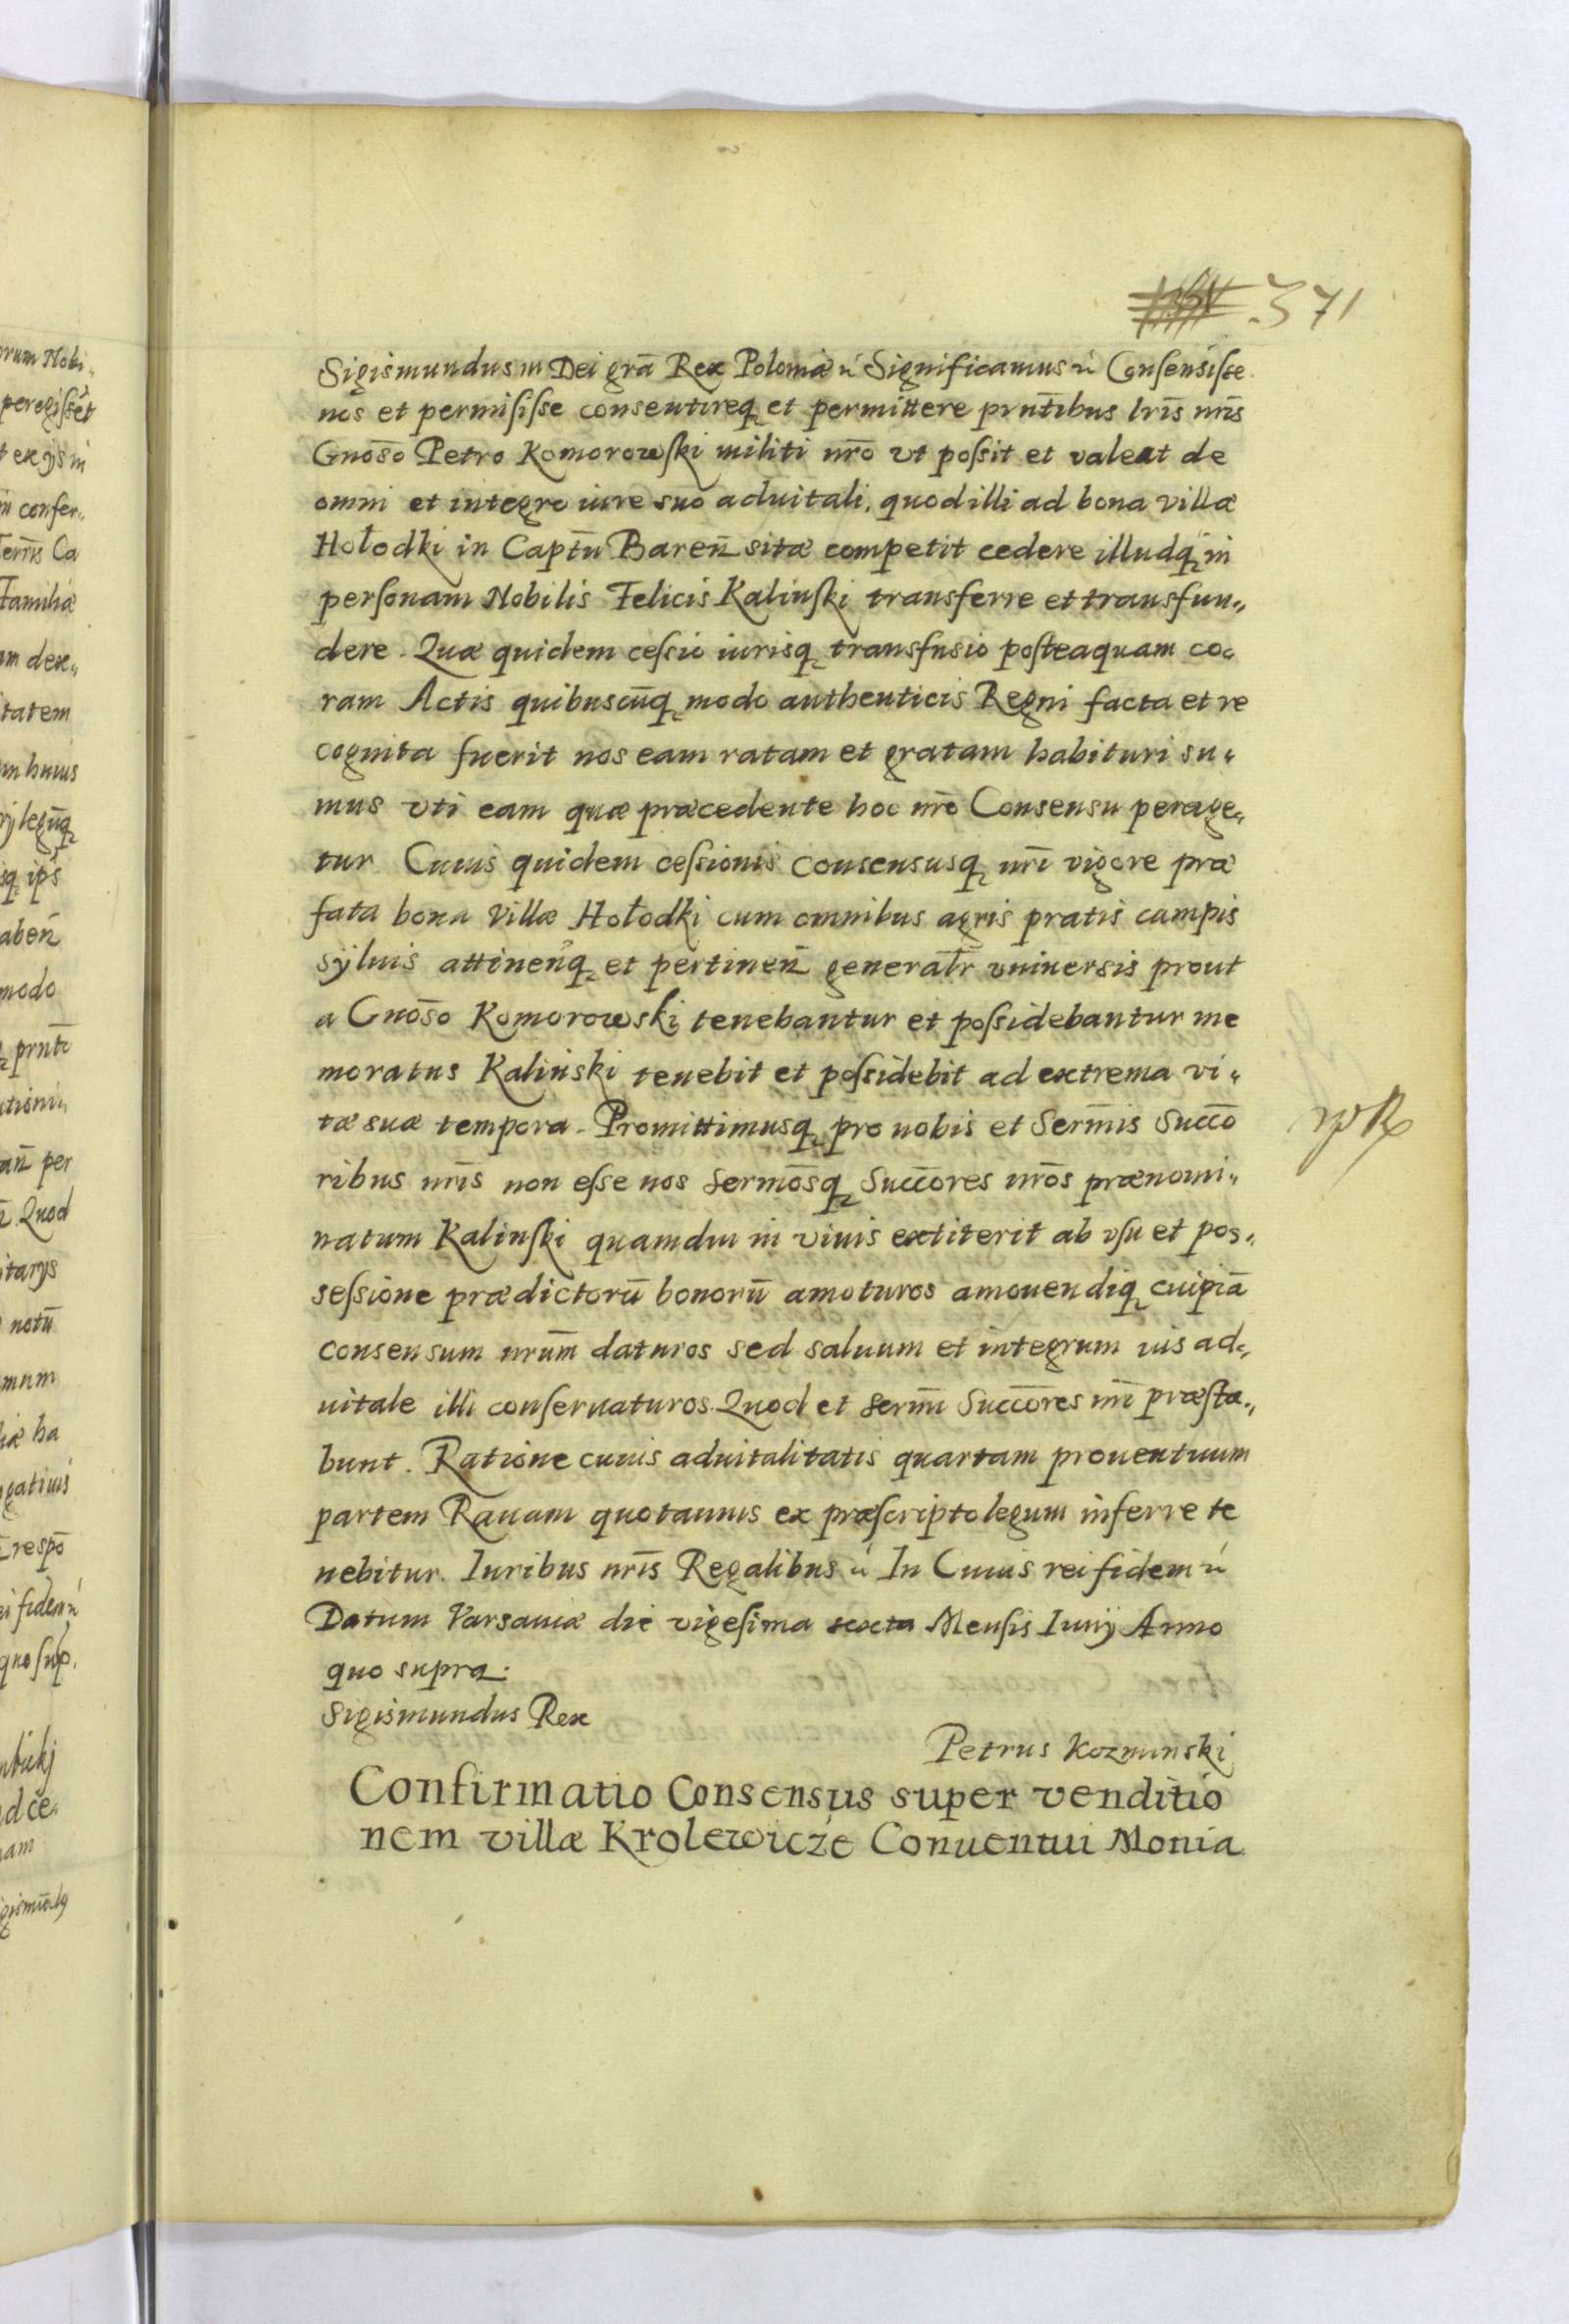 371
Sigismundus III Dei grā Rex Poloniæ ꝛ̃ Significamus ꝛ̃ Consensisse
nos et permisisse consentireq́ et permittere prn̄tibus lrīs nrīs
Gnōso Petro Komorowski militi nrō vt possit et valeat de
omni et integro iure suo aduitali, quod illi ad bona villæ
Hołodki in Captū Bareñ sitæ competit cedere illudq́ in
personam Nobilis Felicis Kalinski transferre et transfun„
dere. Quæ quidem cessio iurisq́ transfusio posteaquam co„
ram Actis quibuscūq́ modo authenticis Regni facta et re
cognita fuerit nos eam ratam et gratam habituri su„
mus vti eam quæ præcedente hoc nrō Consensu perage„
tur Cuius quidem cessionis consensusq́ nrī vigore præ
fata bona villæ Hołodki cum omnibus agris pratis campis
syluis attineñq́ et pertineñ generalr̄ vniuersis prout
a Gnōso Komorowski tenebantur et possidebantur me
moratus Kalinski tenebit et possidebit ad extrema vi„
tæ suæ tempora. Promittimusq́ pro nobis et Serm̄is Succō
ribus nrīs non esse nos Sermōsq́ Succōres nrōs prænomi„
natum Kalinski quamdiu in viuis extiterit ab vsu et pos„
sessione prædictorū bonorū amoturos amouendiq́ cuipiā
consensum nrūm daturos sed saluum et integrum ius ad„
uitale illi conseruaturos. Quod et Serm̄i Succōres nrī præsta„
bunt. Ratione cuius aduitalitatis quartam prouentuum
partem Rauam quotannis ex præscripto legum inferre te
nebitur. Iuribus nrīs Regalibus ꝛ̃ In Cuius rei fidem ꝛ̃
Datum Varsauiæ die vigesima sexta Mensis Iunij Anno
quo supra.
Sigismundus Rex
Petrus Kozminski
Confirmatio Consensus super venditio
nem villæ Krolewicże Conuentui Monia